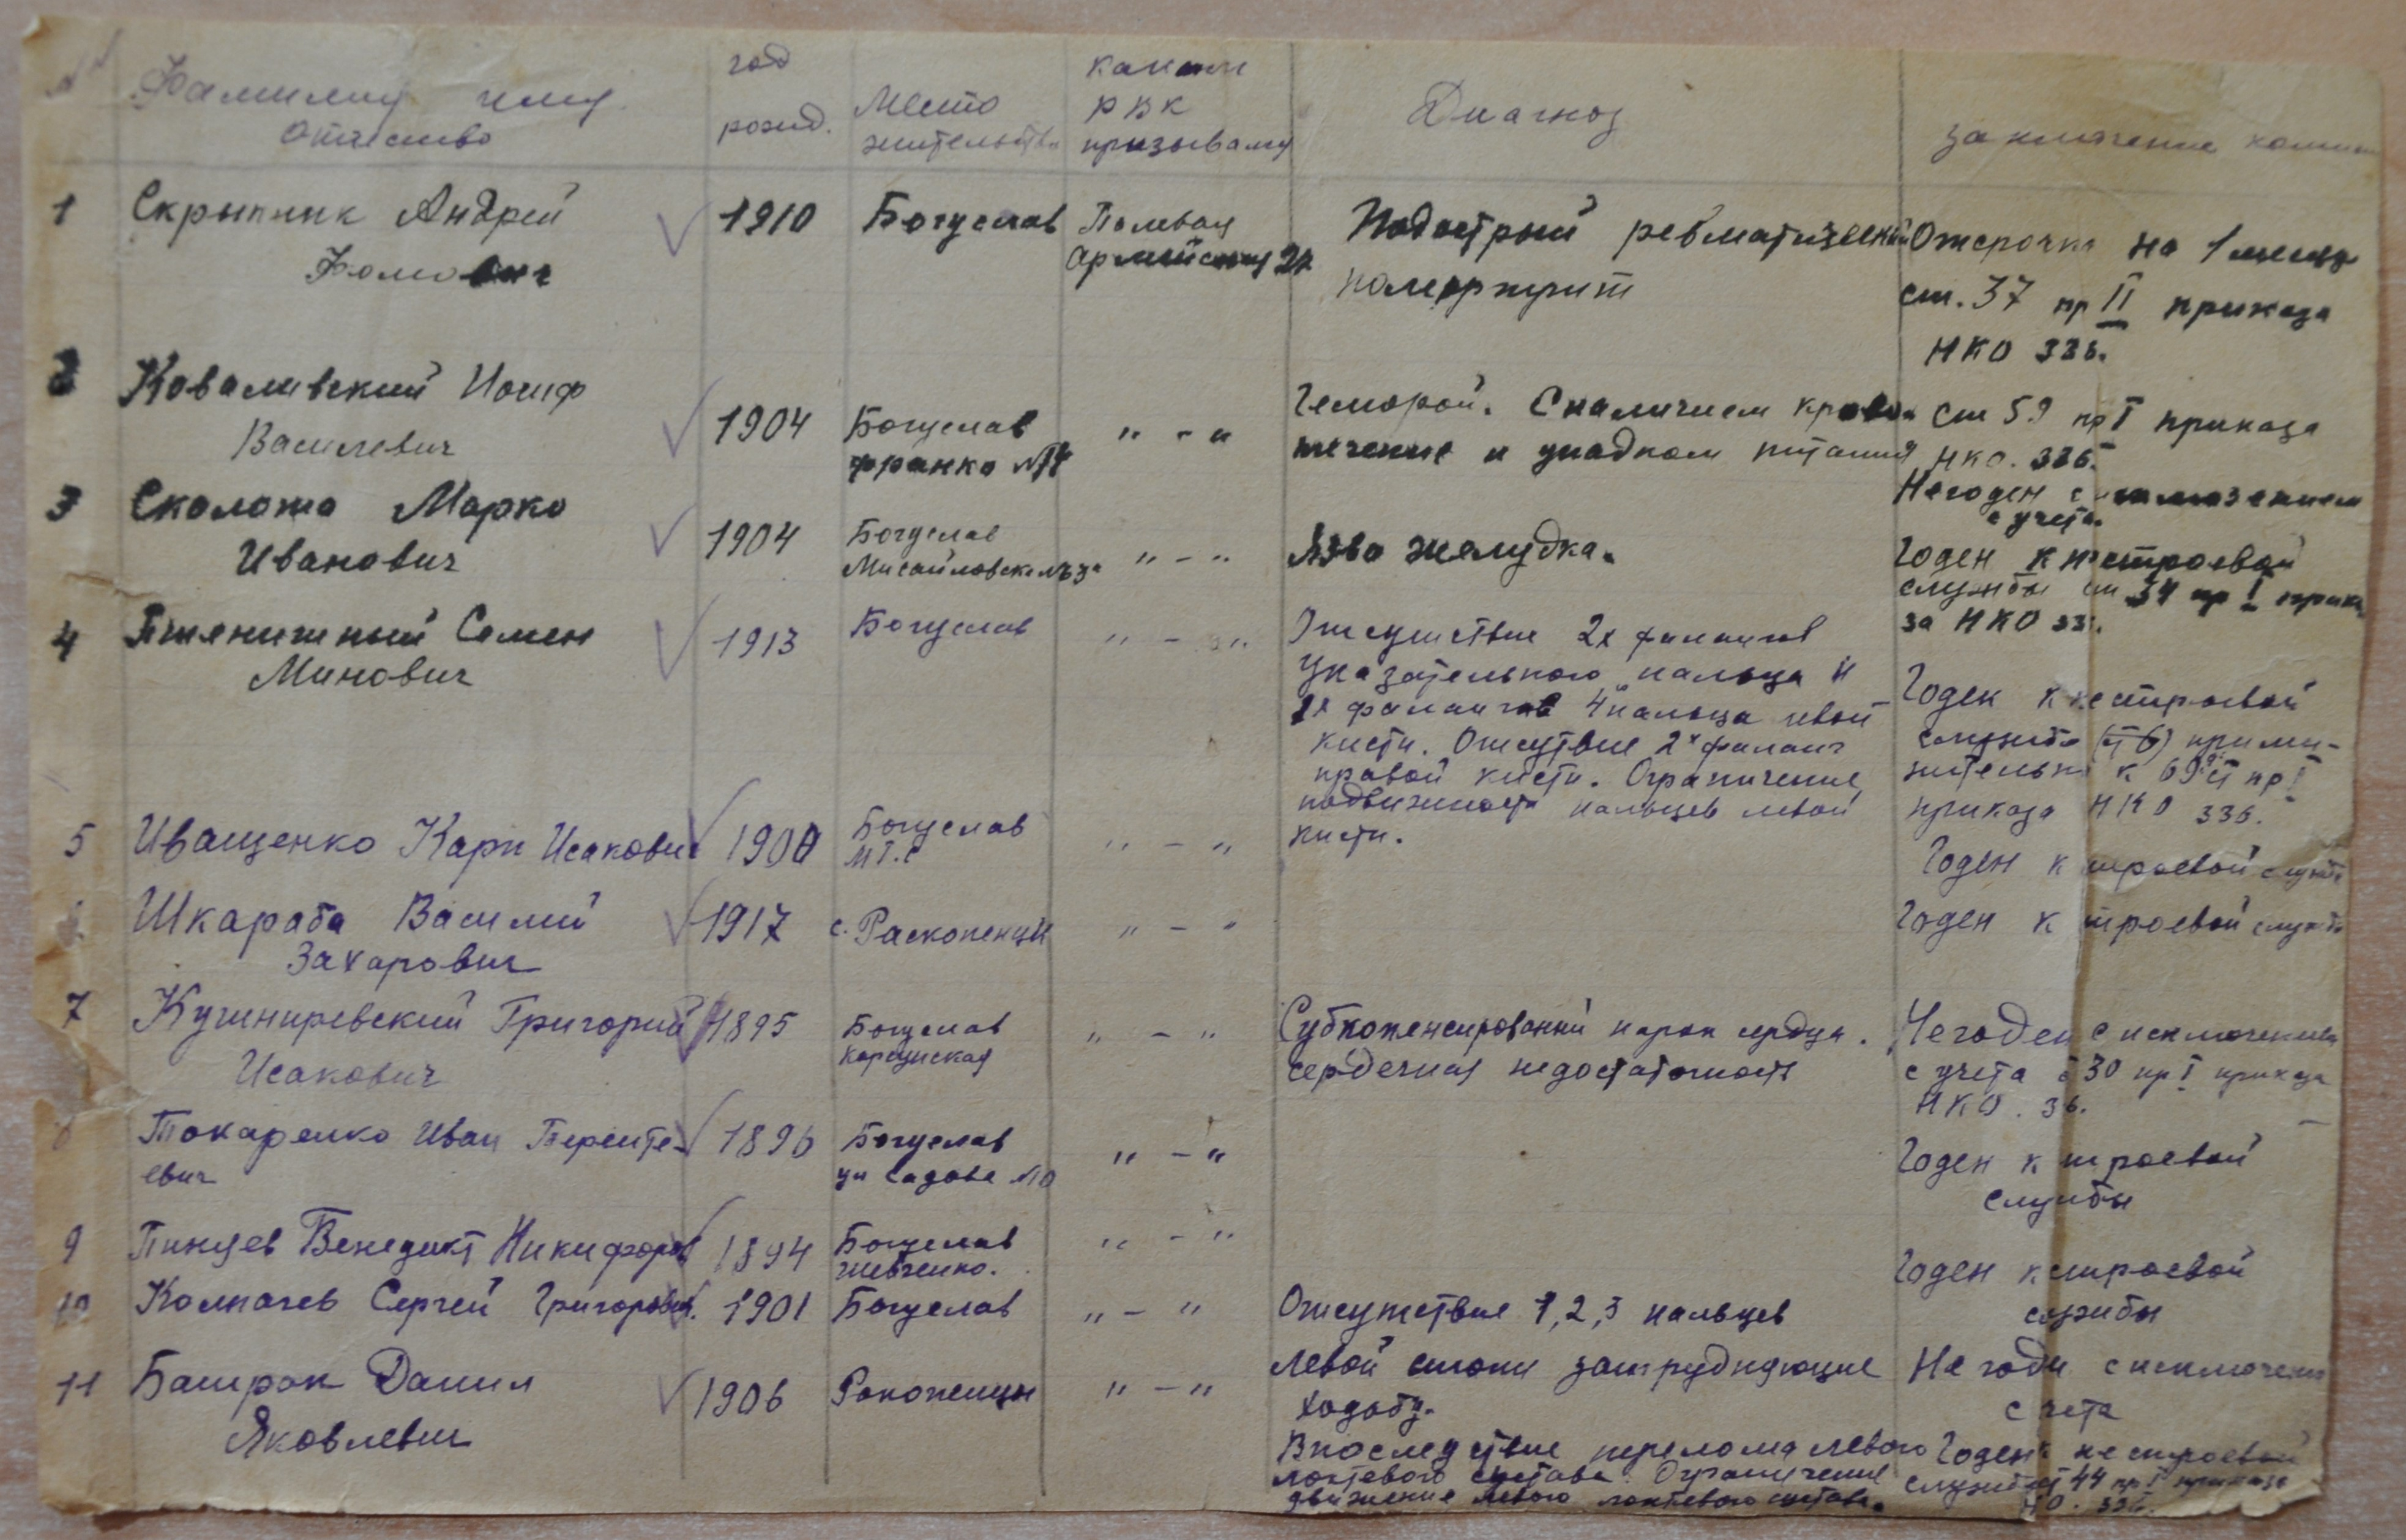 №№ Фамилия имя отчество
год рожд.
Место жительства
каким РВК призываля
Диагноз
заключение
1 Скрыпник Андрей
Фомович
1910
Богуслав
Полевая
Подострый ревматический
полиартрит
Отсрочка на 1 месяц
ст. 37 пр II приказа
НКО 336.
2 Коваливский Иосиф
Василевич
1904
Богуслав
франко
" - "
Геморой. С наличием крово
течение и упадком питания
Ст 59 пр I приказа
НКО. 336.
Негоден с исключением
с учета.
3 Сколота Марко
Иванович
1904
Богуслав
" - "
Язва желудка.
Годен к нестроевой
службы ст 34 пр I прика
за НКО 33.
4 Пшенишный Семен
Минович
1913
Богуслав
" - "
Отсушствие 2х фалангов
указательного пальца и
2х фалангов 4го пальца левой
кисти. Отсутвие 2х фаланг
правой кисти. Ограничение
подвижности пальцев левой
кисти.
Годен к нестроевой
службе приме-
нительно к 69 ст пр I
приказа НКО 336.
5 Иващенко Карп Исакович
1900
Богуслав
МТ.С
" - "
Годен к строевой службе
Шкараба Василий
Захарович
1917
с. Раскопенцы
" - "
Годен к строевой службе
7 Кушниревский Григорий
Исакович
1895
Богуслав
корсунская
" - "
Субкоменсированый порок сердца.
сердечная недостаточность
Негоден с исключением
с учета 30 пр I приказа
НКО. 36.
Токаренко Иван Теренте-
евич
1896
Богуслав
ул садова
" - "
Годен к строевой
службы
9 Пинчев Венедикт Никифоров
1894
Богуслав
шевченко.
" - "
Годен к строевой
службы
10 Колпачев Сергей Григорович.
1901
Богуслав
" - "
Отсутствие 1,2,3 пальцев
левой стопы затрудняющие
ходобу.
Не годен с исключен
с чета
11 Батрак Данил
Яковлевич
1906
Ракопенцы
" - "
Впоследствие перелома левого
локтевого сустава. Ограничение
движение левого локтевого сустава.
Годен к не строевой
службе ст 44 пр I приказа
НКО. 336.